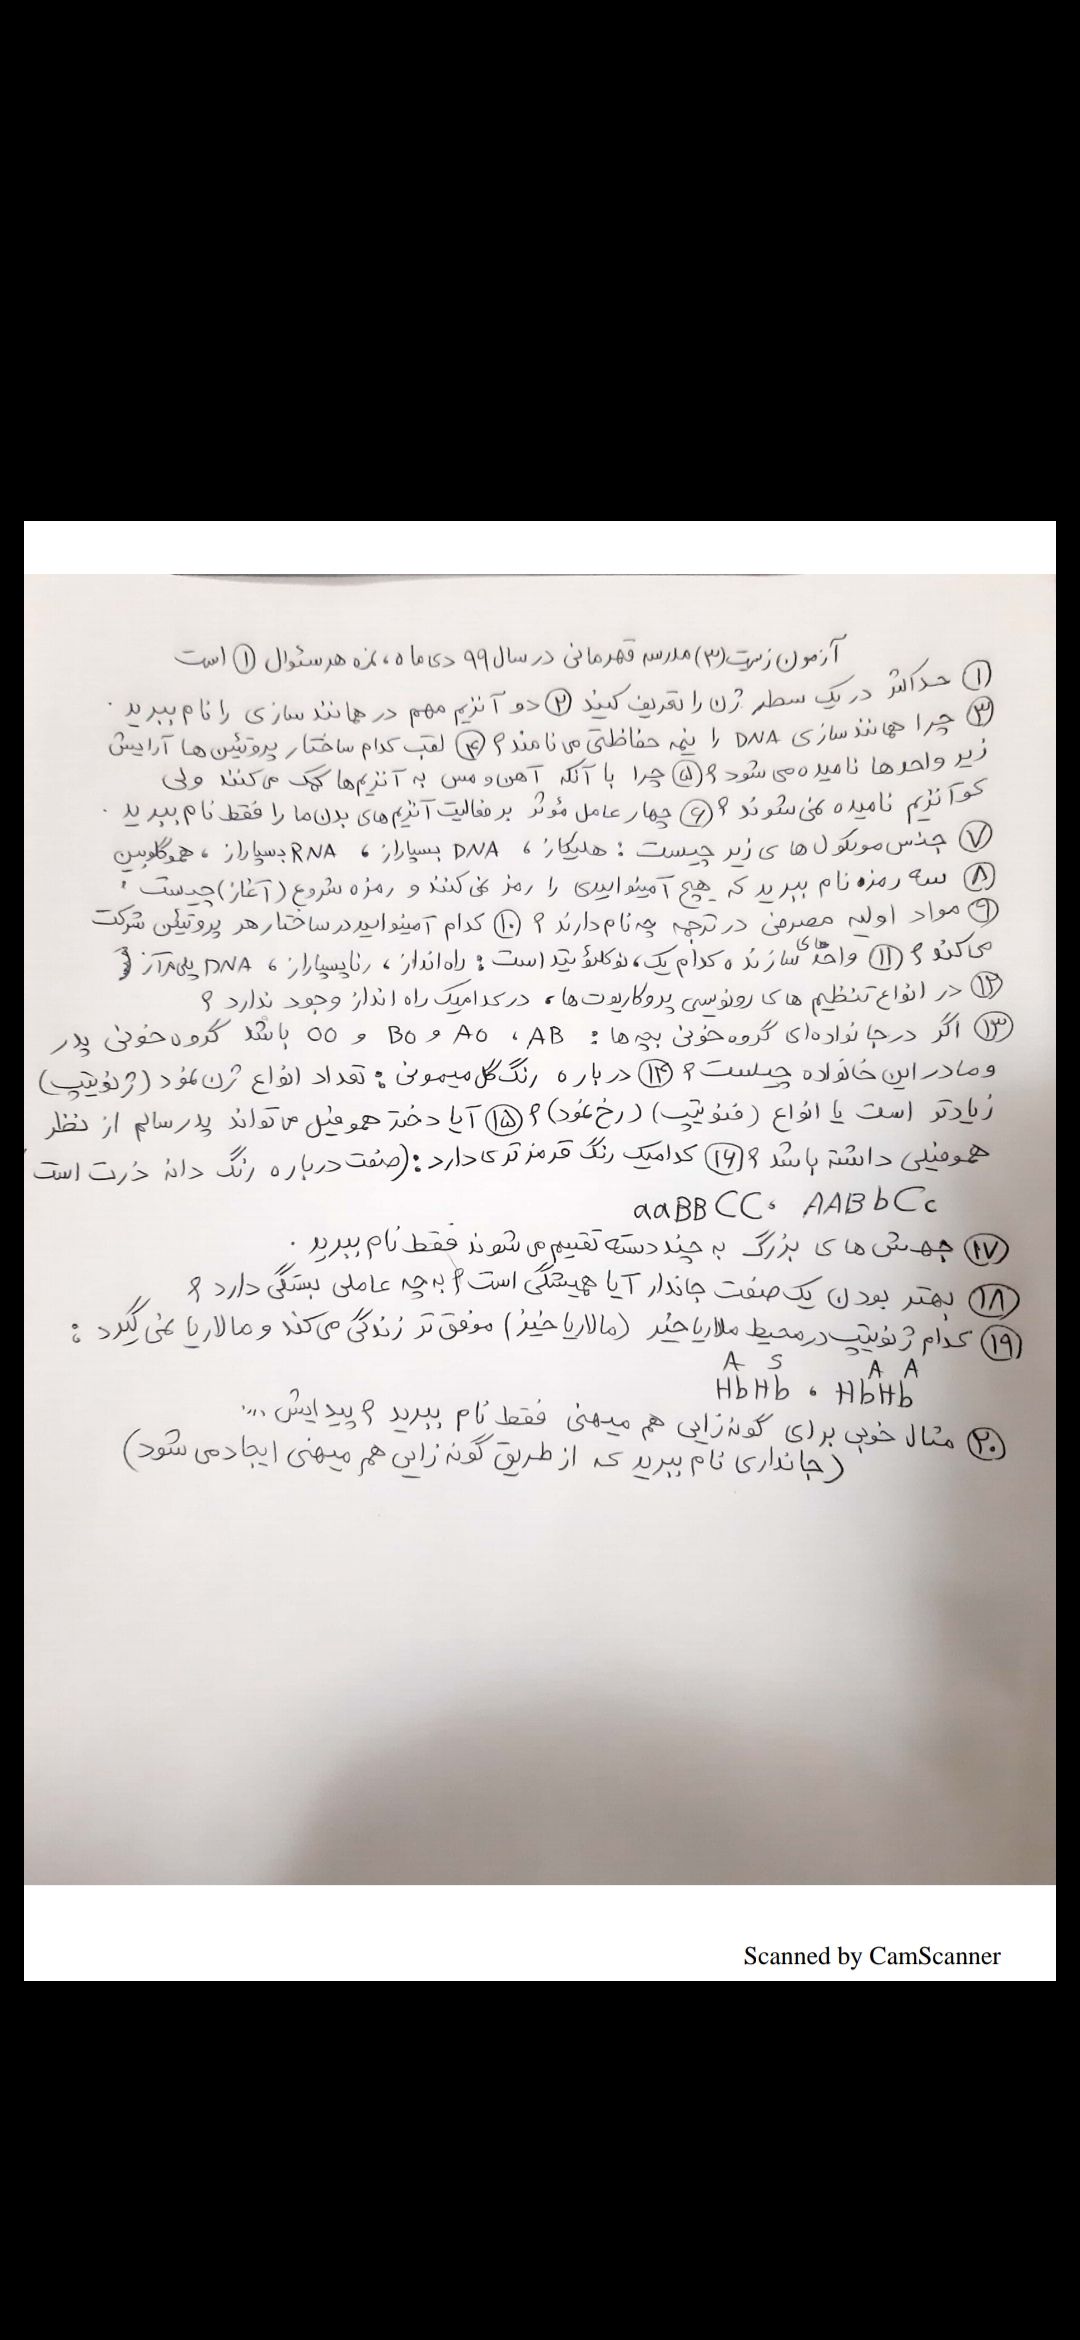 آزمون زیست (۳) مدرسه قهرمانی در سال ۹۹ دی ماه ، نمره هر سئوال ① است
① حداکثر در یک سطر ژن را تعریف کنید ② دو آنزیم مهم در همانند سازی را نام ببرید .
③ چرا همانند سازی DNA را نیمه حفاظتی می نامند ؟ ④ لقب کدام ساختار پروتئین ها آرایش
زیر واحد ها نامیده می شود ؟ ⑤ چرا با آنکه آهن و مس به آنزیم ها کمک می کنند ولی
کوآنزیم نامیده نمی شوند ؟ ⑥ چهار عامل مؤثر بر فعالیت آنزیم های بدن ما را فقط نام ببرید .
⑦ جنس مولکول ها ی زیر چیست : هلیکاز ، DNA بسپاراز ، RNA بسپاراز ، هموگلوبین
⑧ سه رمزه نام ببرید که هیچ آمینواسیدی را رمز نمی کنند و رمزه شروع (آغاز) چیست ؟
⑨ مواد اولیه مصرفی در ترجمه چه نام دارند ؟ ⑩ کدام آمینواسید در ساختار هر پروتئین شرکت
می کند ؟ ⑪ واحدهای سازنده کدام یک ، نوکلئوتید است : راه انداز ، رنابسپاراز ، DNA پلی مراز
⑫ در انواع تنظیم ها ی رونویسی پروکاریوت ها ، در کدامیک راه انداز وجود ندارد ؟
⑬ اگر در خانواده ای گروه خونی بچه ها : AB ، AO و BO و OO باشد گروه خونی پدر
و مادر این خانواده چیست ؟ ⑭ در باره رنگ گل میمونی : تعداد انواع ژن نمود (ژنوتیپ)
زیادتر است یا انواع (فنوتیپ) (رخ نمود) ؟ ⑮ آیا دختر هموفیل می تواند پدر سالم از نظر
هموفیلی داشته باشد ؟ ⑯ کدامیک رنگ قرمز تری دارد : (صفت درباره رنگ دانه ذرت است)
aaBBCC ، AABbCc
⑰ جهش ها ی بزرگ به چند دسته تقسیم می شوند فقط نام ببرید .
⑱ بهتر بودن یک صفت جاندار آیا همیشگی است ؟ به چه عاملی بستگی دارد ؟
⑲ کدام ژنوتیپ در محیط ملاریا خیز (مالاریا خیز) موفق تر زندگی می کند و مالاریا نمی گیرد :
Hbᴬ Hbˢ ، Hbᴬ Hbᴬ
⑳ مثال خوبی برای گونه زایی هم میهنی فقط نام ببرید ؟ پیدایش ....
(جانداری نام ببرید که از طریق گونه زایی هم میهنی ایجاد می شود)
Scanned by CamScanner